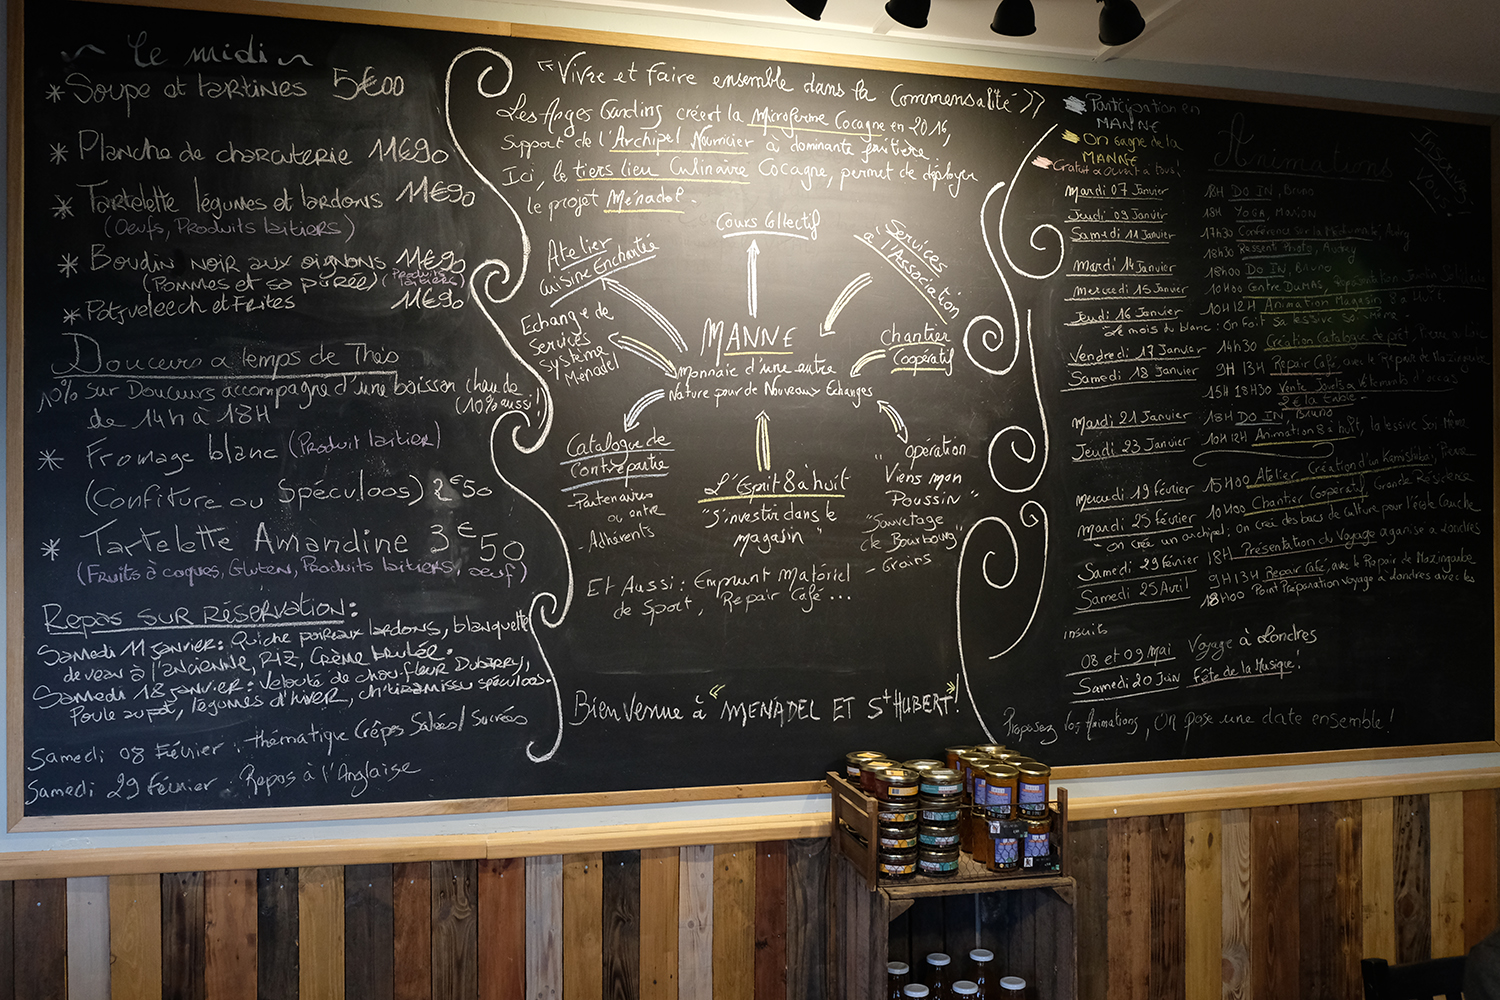 Le midi
* Soupe et tartines 5€00
* Planche de charcuterie 11€90
* Tartelette légumes et lardons 11€90
(Oeufs, Produits laitiers)
* Boudin noir aux oignons 11€90
(Pommes et sa purée) (Produits laitiers)
* Potjevleech et Frites 11€90
Douceurs a temps de Thés
10% sur Douceurs accompagne d'une boisson chaude
de 14h à 18H (10% aussi!)
* Fromage blanc (Produit laitier)
(Confiture ou Spéculoos) 2€50
* Tartelette Amandine 3€50
(Fruits à coques, Gluten, Produits laitiers, oeuf)
Repas sur réservation:
Samedi 11 janvier: Quiche poireaux lardons, blanquette
de veau à l'ancienne, Riz, Crème brulée.
Samedi 18 janvier: Velouté de chou-fleur Dubarry,
Poule au pot, légumes d'hiver, ch'tiramissu spéculoos.
Samedi 08 Février : thématique Crêpes Salées/ Sucrées
Samedi 29 février : Repas à l'Anglaise
"Vivre et faire ensemble dans la Commensalité"
Les Anges Gardins créent la Microferme Cocagne en 2016,
support de l'Archipel Nourricier à dominante fruitière.
Ici, le tiers lieu Culinaire Cocagne, permet de déployer
le projet Ménadel.
Cours Collectif
Atelier
Cuisine Enchantée
Services
à l'Association
Echange de
Services
système
Ménadel
MANNE
Monnaie d'une autre
Nature pour de Nouveaux Echanges
Chantier
Coopératif
Catalogue de
Contrepartie
- Partenaires
ou entre
- Adhérents
L'Esprit 8 à huit
"S'investir dans le
magasin"
opération
"Viens mon
Poussin"
"Sauvetage
de Bourbourg"
- Grains
Et Aussi : Emprunt Matériel
de Sport, Repair Café...
Bienvenue à "MENADEL ET St HUBERT"!
Participation en
MANNE
On gagne de la
MANNE
Gratuit et ouvert a tous!
Animations
Inscrivez
Vous!
Mardi 07 Janvier 18H DO IN, Bruno
Jeudi 09 Janvier 18H YOGA, Marion
Samedi 11 Janvier 17H30 Conférence sur la
18H30 Ressenti Photo, Audrey
Mardi 14 Janvier 18h00 DO IN, Bruno
Mercredi 15 Janvier 10H00 Centre DUMAS, Représentation Jardin Solidaire
Jeudi 16 Janvier 10H 12H Animation Magasin 8 à Huit,
Le mois du blanc : On fait sa lessive soi même
Vendredi 17 Janvier 14H30 Création Catalogue de prêt,
Samedi 18 Janvier 9H 13H Repair Café, avec le Repair de Mazingarbe
15H 18H30 Vente Jouets et Vêtements d'occas
2€ la
Mardi 21 Janvier 18H DO IN, Bruno
Jeudi 23 Janvier 10H 12H Animation 8 à huit, la lessive Soi Même
Mercredi 19 Février 15H00 Atelier Création d'un Kamishibaï,
Mardi 25 février 10H00 Chantier Coopératif Grande Résidence
"On crée un archipel : on créé des bacs de culture pour l'école
Samedi 29 février 18H Présentation du Voyage organisé a Londres
Samedi 25 Avril 9H 13H Repair Café, avec le Repair de Mazingarbe
18H00 Point Préparation voyage à Londres avec les
inscrits
08 et 09 Mai Voyage à Londres
Samedi 20 Juin Fête de la Musique!
Proposez vos Animations, On pose une date ensemble!